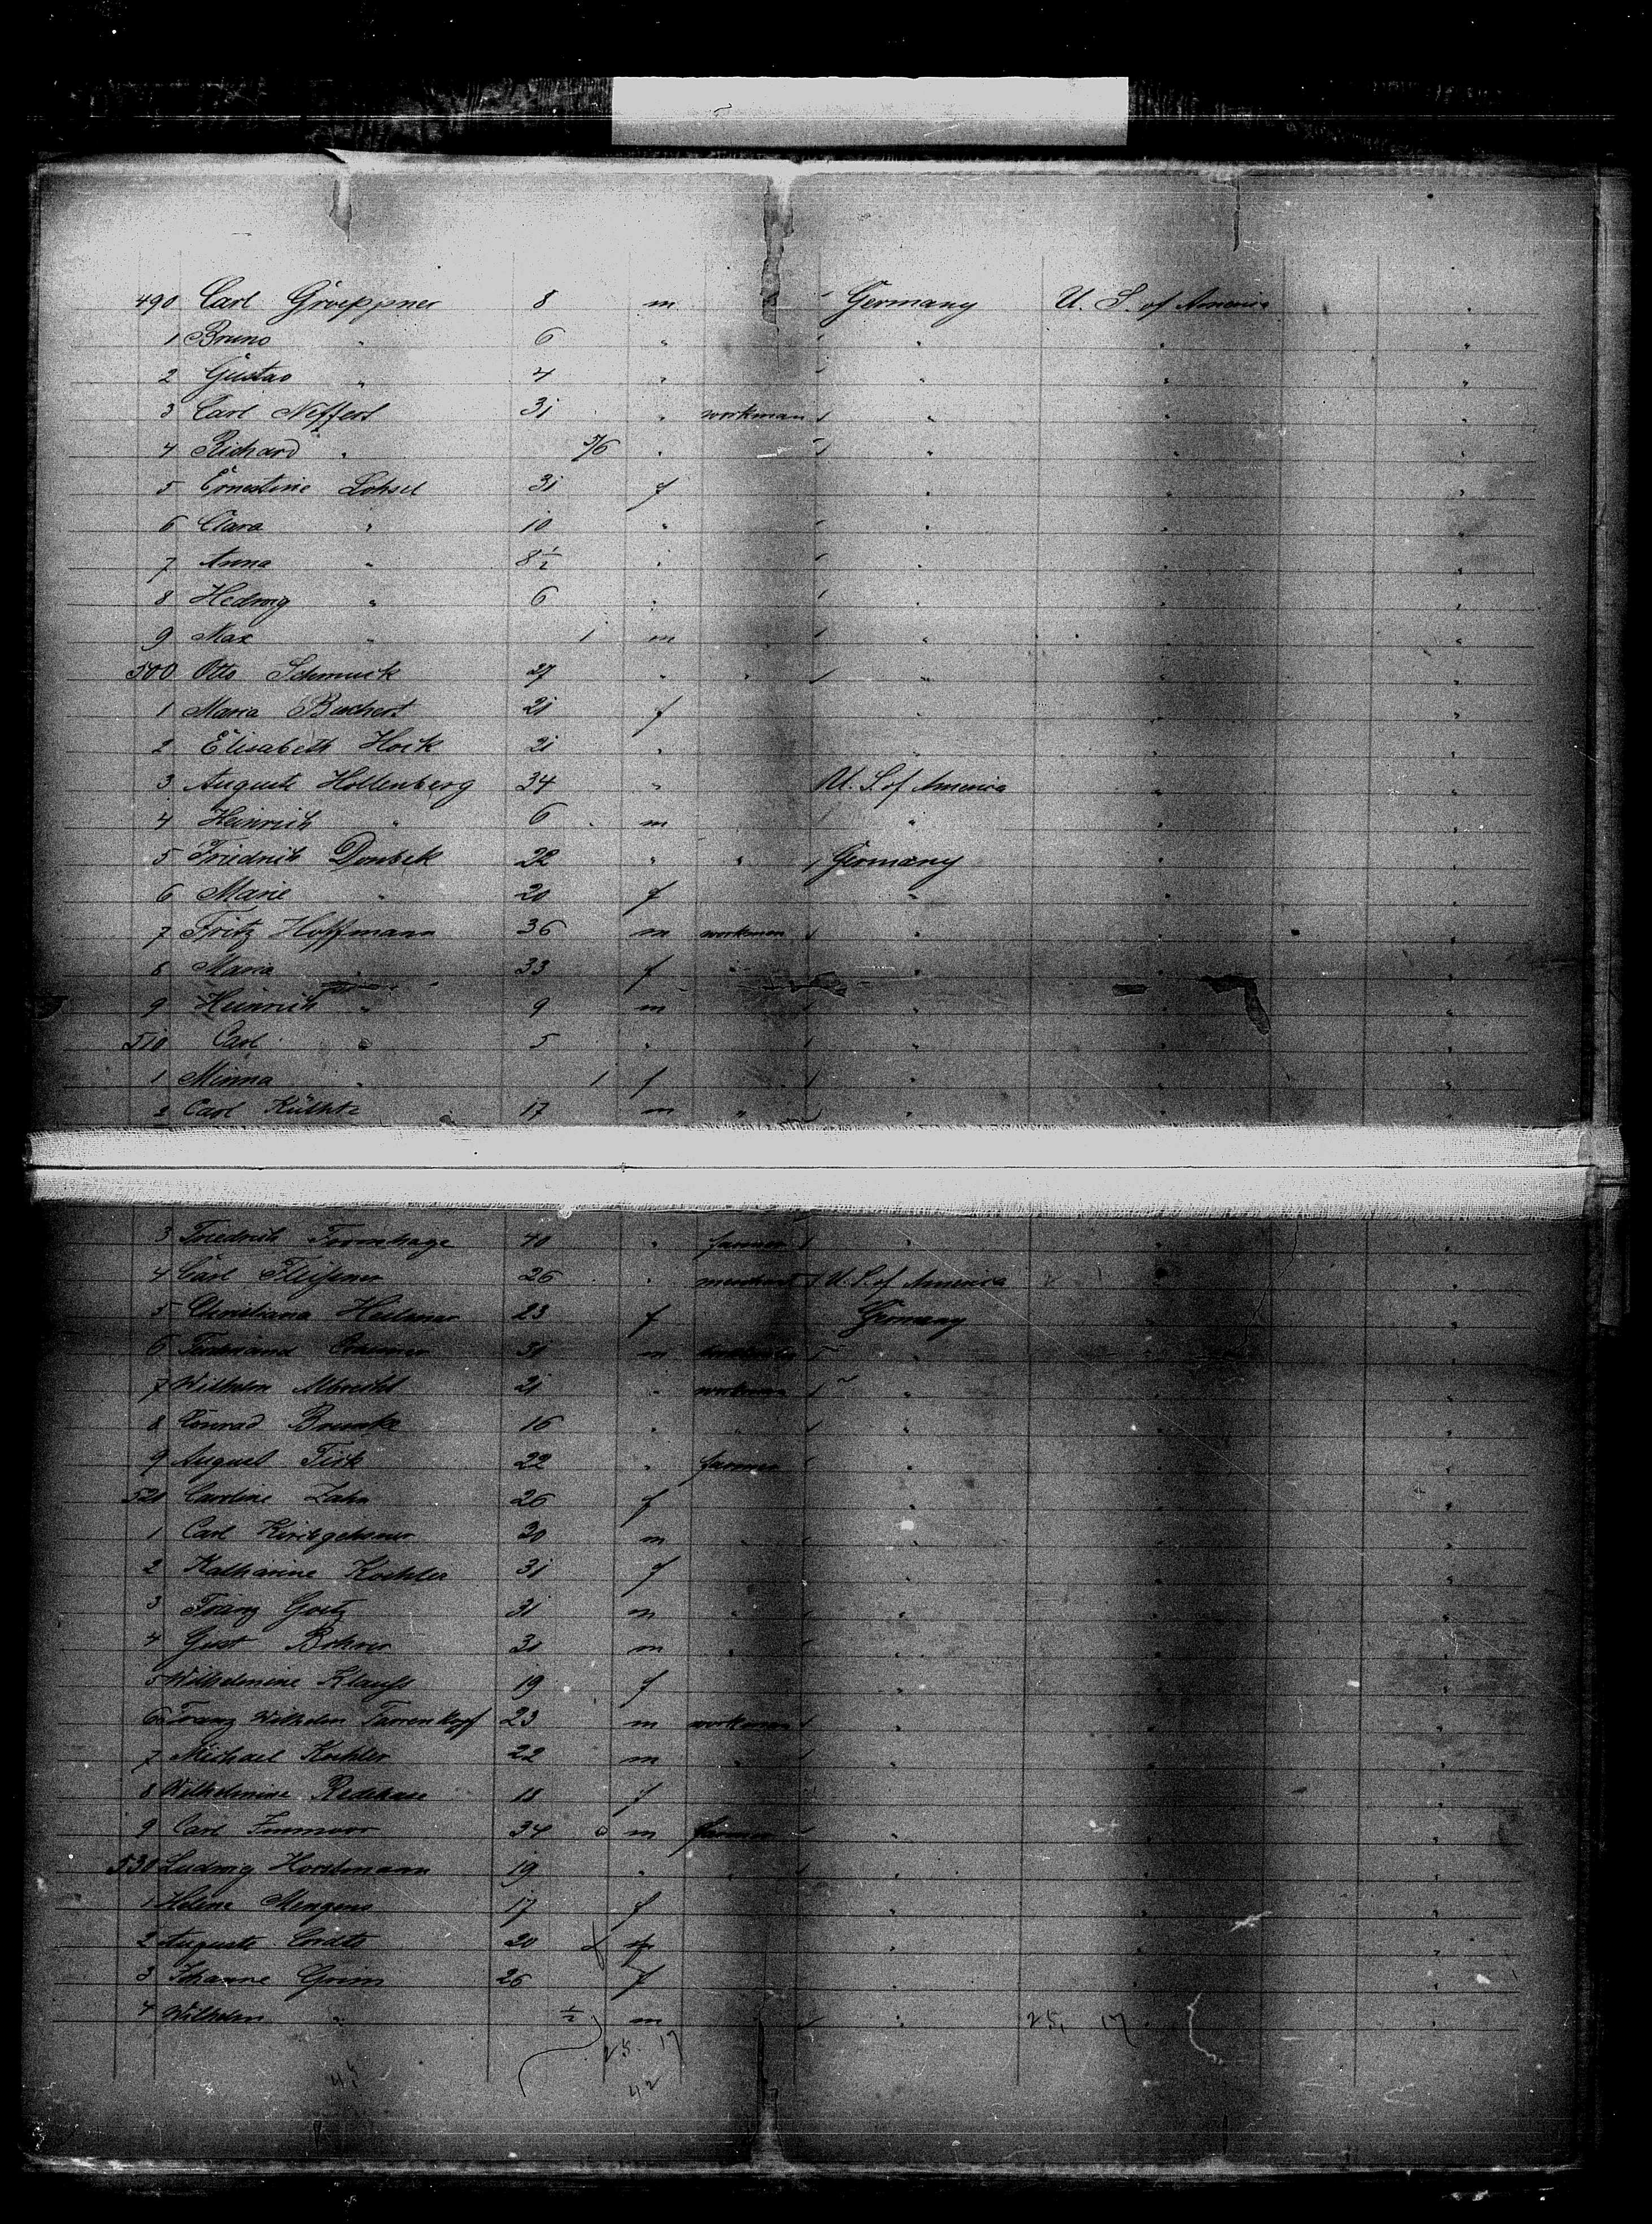 490 Carl Groeppner 8 m Germany U. S. of America "
1 Bruno " 6 " " " "
2 Gustav " 4 " " " "
3 Carl Neffert 31 " workman " " "
4 Richard " 5/6 " " " "
5 Ernestine Lohsel 31 f " " "
6 Clara " 10 " " " "
7 Anna " 8 1/2 " " " "
8 Hedwig " 6 " " " "
9 Max " 1 m " " "
500 Otto Schmuck 27 " " " " "
1 Maria Buchert 21 f " " "
2 Elisabeth Hock 21 " " " "
3 Auguste Hollenberg 34 " U. S. of America " "
4 Heinrich " 6 m " " "
5 Friedrich Donbek 22 " " Germany " "
6 Marie " 20 f " " "
7 Fritz Hoffmann 36 m workman " " "
8 Maria " 33 f " " "
9 Heinrich " 9 m " " "
510 Carl " 5 " " " "
1 Minna " 1 f " " "
2 Carl 17 m " " " "
3 Friedrich 40 " farmer " " "
4 Carl 26 " merchant U. S. of America " "
5 Christiana 23 f Germany " "
6 Ferdinand 31 m " " "
7 Wilhelm Albrecht 21 " workman " " "
8 Conrad 16 " " " " "
9 August 22 " farmer " " "
520 Caroline Lahn 26 f " " "
1 Carl 30 m " " " "
2 Katharine Koehler 31 f " " "
3 Franz Goetz 31 m " " " "
4 Gust 31 m " " " "
5 Wilhelmine 19 f " " "
6 Franz Wilhelm Tarrenkopf 23 m workman " " "
7 Michael Koehler 22 m " " " "
8 Wilhelmine 18 f " " "
9 Carl 34 m farmer " " "
530 Ludwig Horstmann 19 " " " " "
1 Helene Mengens 17 f " " "
2 Auguste Cordts 20 " " "
3 Johanne Grim 26 f " " "
4 Wilhelm " 1/2 m " " "
25. 17 25, 17
45 42